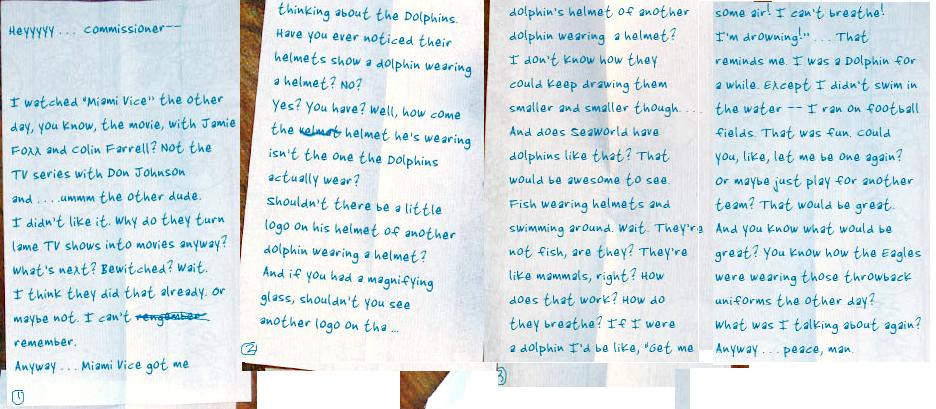 Heyyyyy... commissioner--
I watched "Miami Vice" the other
day, you know, the movie, with Jamie
Foxx and Colin Farrell? Not the
TV series with Don Johnson
and ....ummm the other dude.
I didn't like it. Why do they turn
lame TV shows into movies anyway?
What's next? Bewitched? Wait.
I think they did that already. Or
maybe not. I can't rengember
remember.
Anyway ... Miami Vice got me
1
thinking about the Dolphins.
Have you ever noticed their
helmets show a dolphin wearing
a helmet? No?
Yes? You have? Well, how come
the helmet he's wearing
isn't the one the Dolphins
actually wear?
Shouldn't there be a little
logo on his helmet of another
dolphin wearing a helmet?
And if you had a magnifying
glass, shouldn't you see
another logo on tha ...
2
dolphin's helmet of another
dolphin wearing a helmet?
I don't know how they
could keep drawing them
smaller and smaller though....
And does SeaWorld have
dolphins like that? That
would be awesome to see.
Fish wearing helmets and
swimming around. Wait. They're
not fish, are they? They're
like mammals, right? How
does that work? How do
they breathe? If I were
a dolphin I'd be like, "Get me
3
some air! I can't breathe!
I'm drowning!" ... That
reminds me. I was a Dolphin for
a while. Except I didn't swim in
the water -- I ran on football
fields. That was fun. Could
you, like, let me be one again?
Or maybe just play for another
team? That would be great.
And you know what would be
great? You know how the Eagles
were wearing those throwback
uniforms the other day?
What was I talking about again?
Anyway ... peace, man.